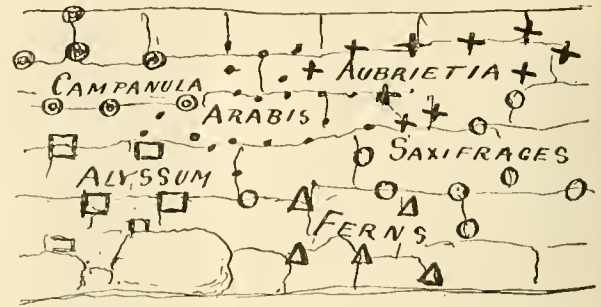 CAMPANULA
AUBRIETIA
ARABIS
SAXIFRAGES
ALYSSUM
FERNS